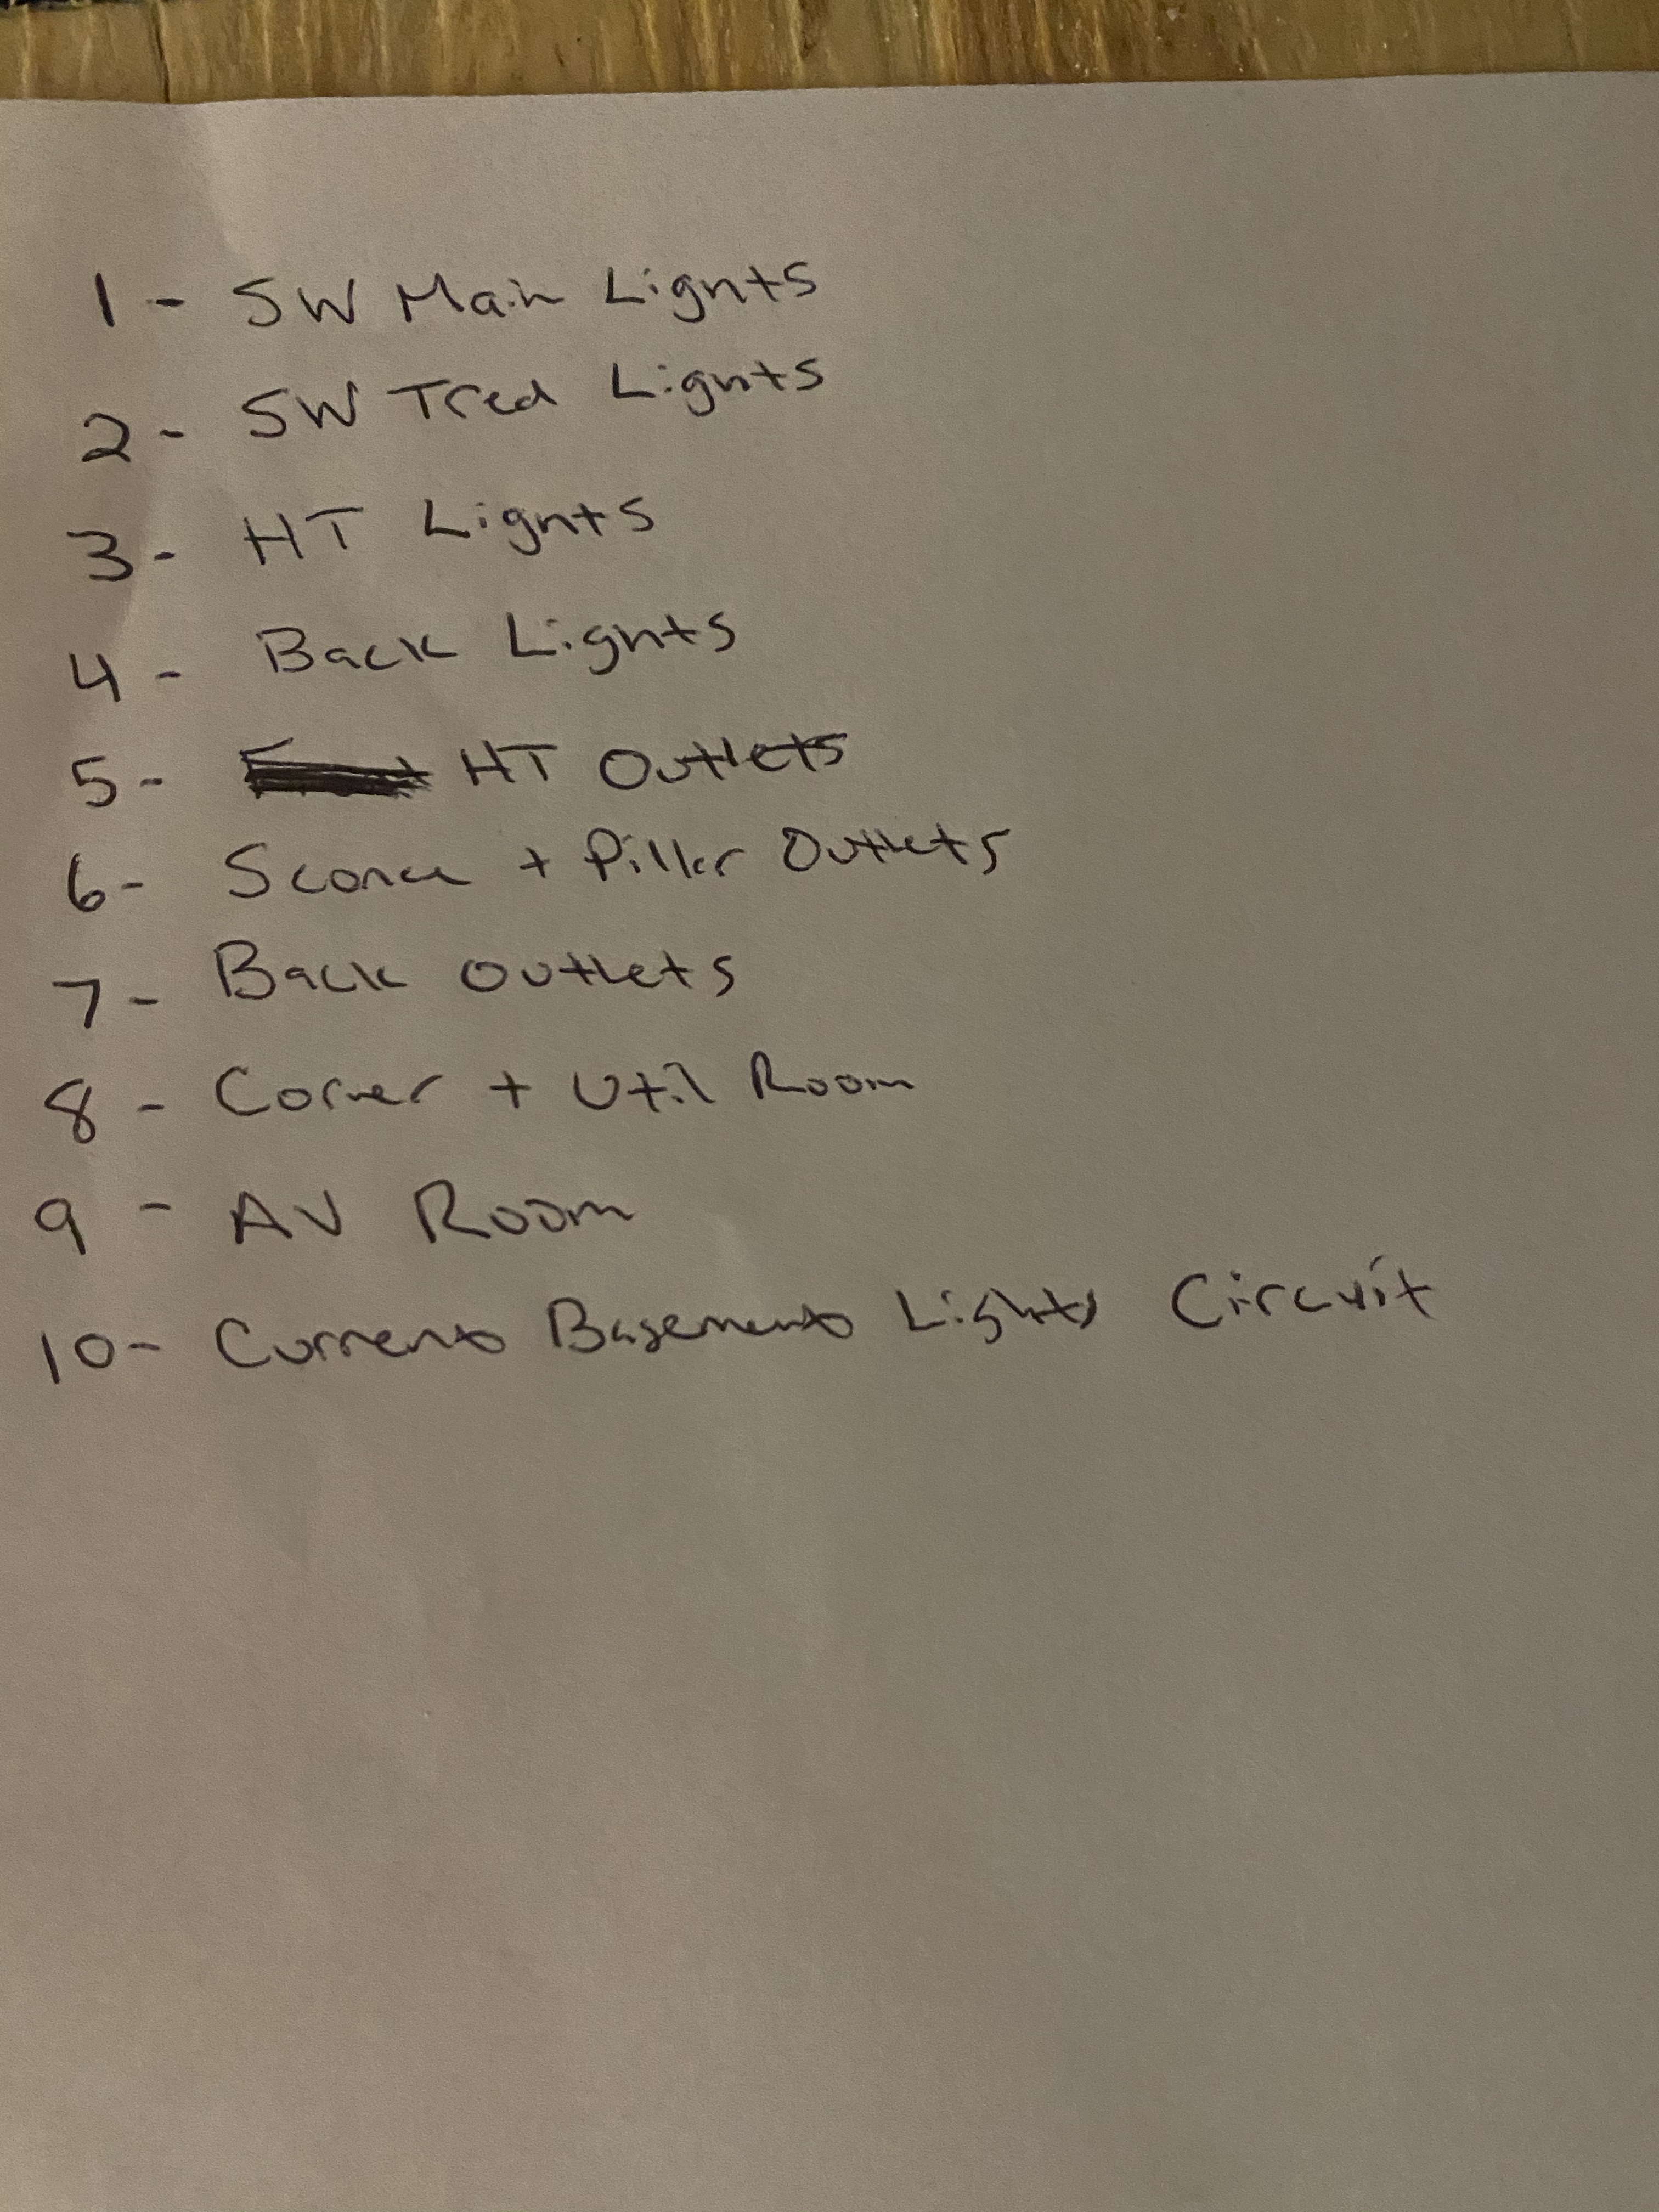 1 - SW Main Lights
2 - SW Tred Lights
3 - HT Lights
4 - Back Lights
5 - HT Outlets
6 - Sconce + Piller Outlets
7 - Back Outlets
8 - Corner + Util Room
9 - AV Room
10 - Current Basement Lights Circuit